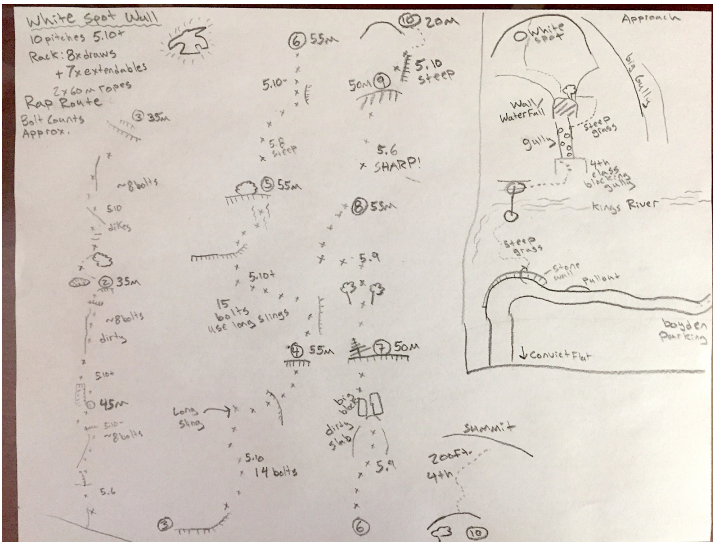 White Spot Wall
10 pitches 5.10+
Rack: 8x draws
+ 7x extendables
2x60m ropes
Rap Route
Bolt Counts
Approx.
③ 35m
~8 bolts
5.10
dikes
② 35m
~8 bolts
dirty
5.10+
① 45m
5.10-
~8 bolts
5.6
⑥ 55m
5.10-
5.8
steep
⑤ 55m
5.10+
15
bolts
use long slings
④ 55m
Long
Sling
5.10
14 bolts
③
⑩ 20m
5.10
steep
50m ⑨
5.6
SHARP!
⑧ 55m
5.9
⑦ 50m
big
block
dirty
slab
5.9
⑥
Summit
200ft.
4th
⑩
Approach
White
spot
big Gully
Wall/
Waterfall
steep
grass
gully
4th
class
blocking
gully
Kings River
steep
grass
stone
wall
Pullout
boyden
Parking
↓ Convict Flat